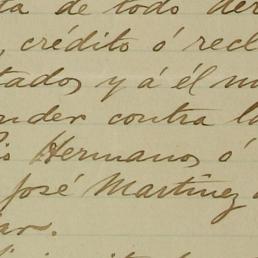 ta de todo der
, crédito ó recl
tados y á él m
nder contra la
io Hermanos, ó
José Martínez
ar.